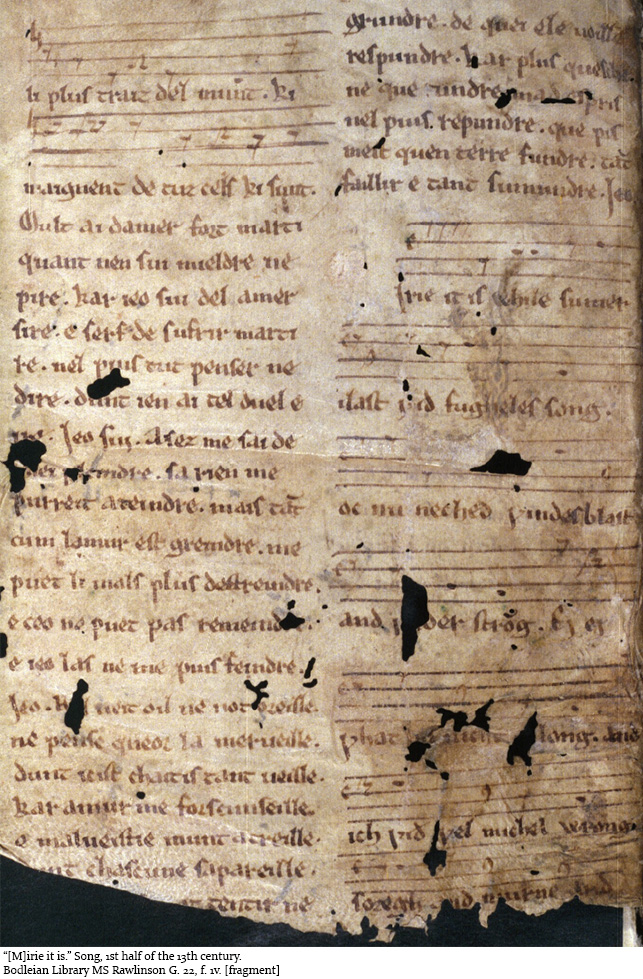 li plus trait del munt. ki
maiguent de tuz cels ki sunt.
ai damer fort marti
quant sui mieldre ne
pire. kar ieo sui del amer
sire. e serf de sufrir marti
re. nel puis tut penser ne
dire. dunt ien ai tel duel e
Jeo sui. Asez me sai de
sa rien me
purreit ateindre. mais tāt
cum lamur est greindre. me
puet li mals plus destreindre.
e ceo ne puet pas
e ieo las ne me puis feindre.
Jeo. ueit oil ne not oreille.
ne pense queor la merueille.
dunt icist chaitis tant ueille.
kar amur me forscunseille.
e malueistie munt
chascune sapareille.
ne
grundre. de quei ele
respundre. kar plus
ne que
nel puis repundre. que pis
meit quen terre fundre. tāt
faillir e tant surundre. Jeo
irie it is while sumer
ilast ƿid fugheles song.
oc nu neched ƿindes blast
and ƿeder strōg. Ej ej
ƿhat nicht long. and
ich ƿid ƿel michel wrong.
soregh and murne and
“[M]irie it is.” Song, 1st half of the 13th century.
Bodleian Library MS Rawlinson G. 22, f. 1v. [fragment]